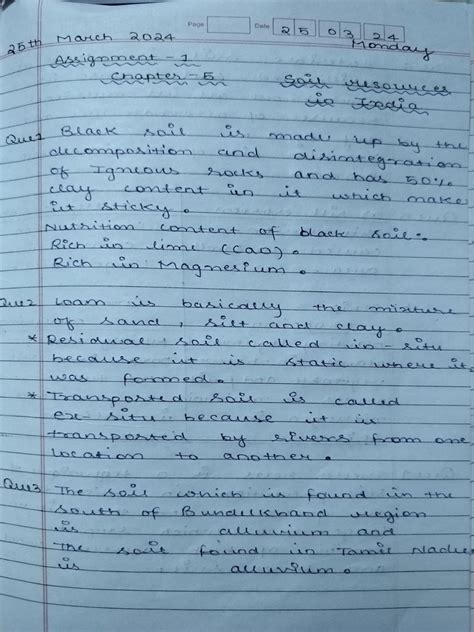 Page Date 25 03 24
25th March 2024 Monday
Assignment - 1
Chapter - 5 Soil resources
in India
Que1 Black soil is made up by the
decomposition and disintegration
of Igneous rocks and has 50%
clay content in it which make
it sticky.
Nutrition content of black soil:
Rich in lime (CaO).
Rich in Magnesium.
Que2 Loam is basically the mixture
of sand, silt and clay.
* Residual soil called in-situ
because it is static where it
was formed.
* Transported soil is called
ex-situ because it is
transported by rivers from one
location to another.
Que3 The soil which is found in the
south of Bundelkhand region
is alluvium and
The soil found in Tamil Nadu
is alluvium.